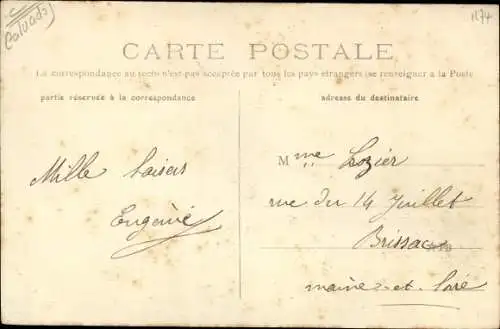 (Calvados)
1174
CARTE POSTALE
La correspondance au recto n'est pas acceptée par tous les pays étrangers (se renseigner à la Poste
partie réservée à la correspondance
adresse du destinataire
Mille baisers
Eugénie
Mme Lozier
rue du 14 Juillet
Brissac
maine-et-loire